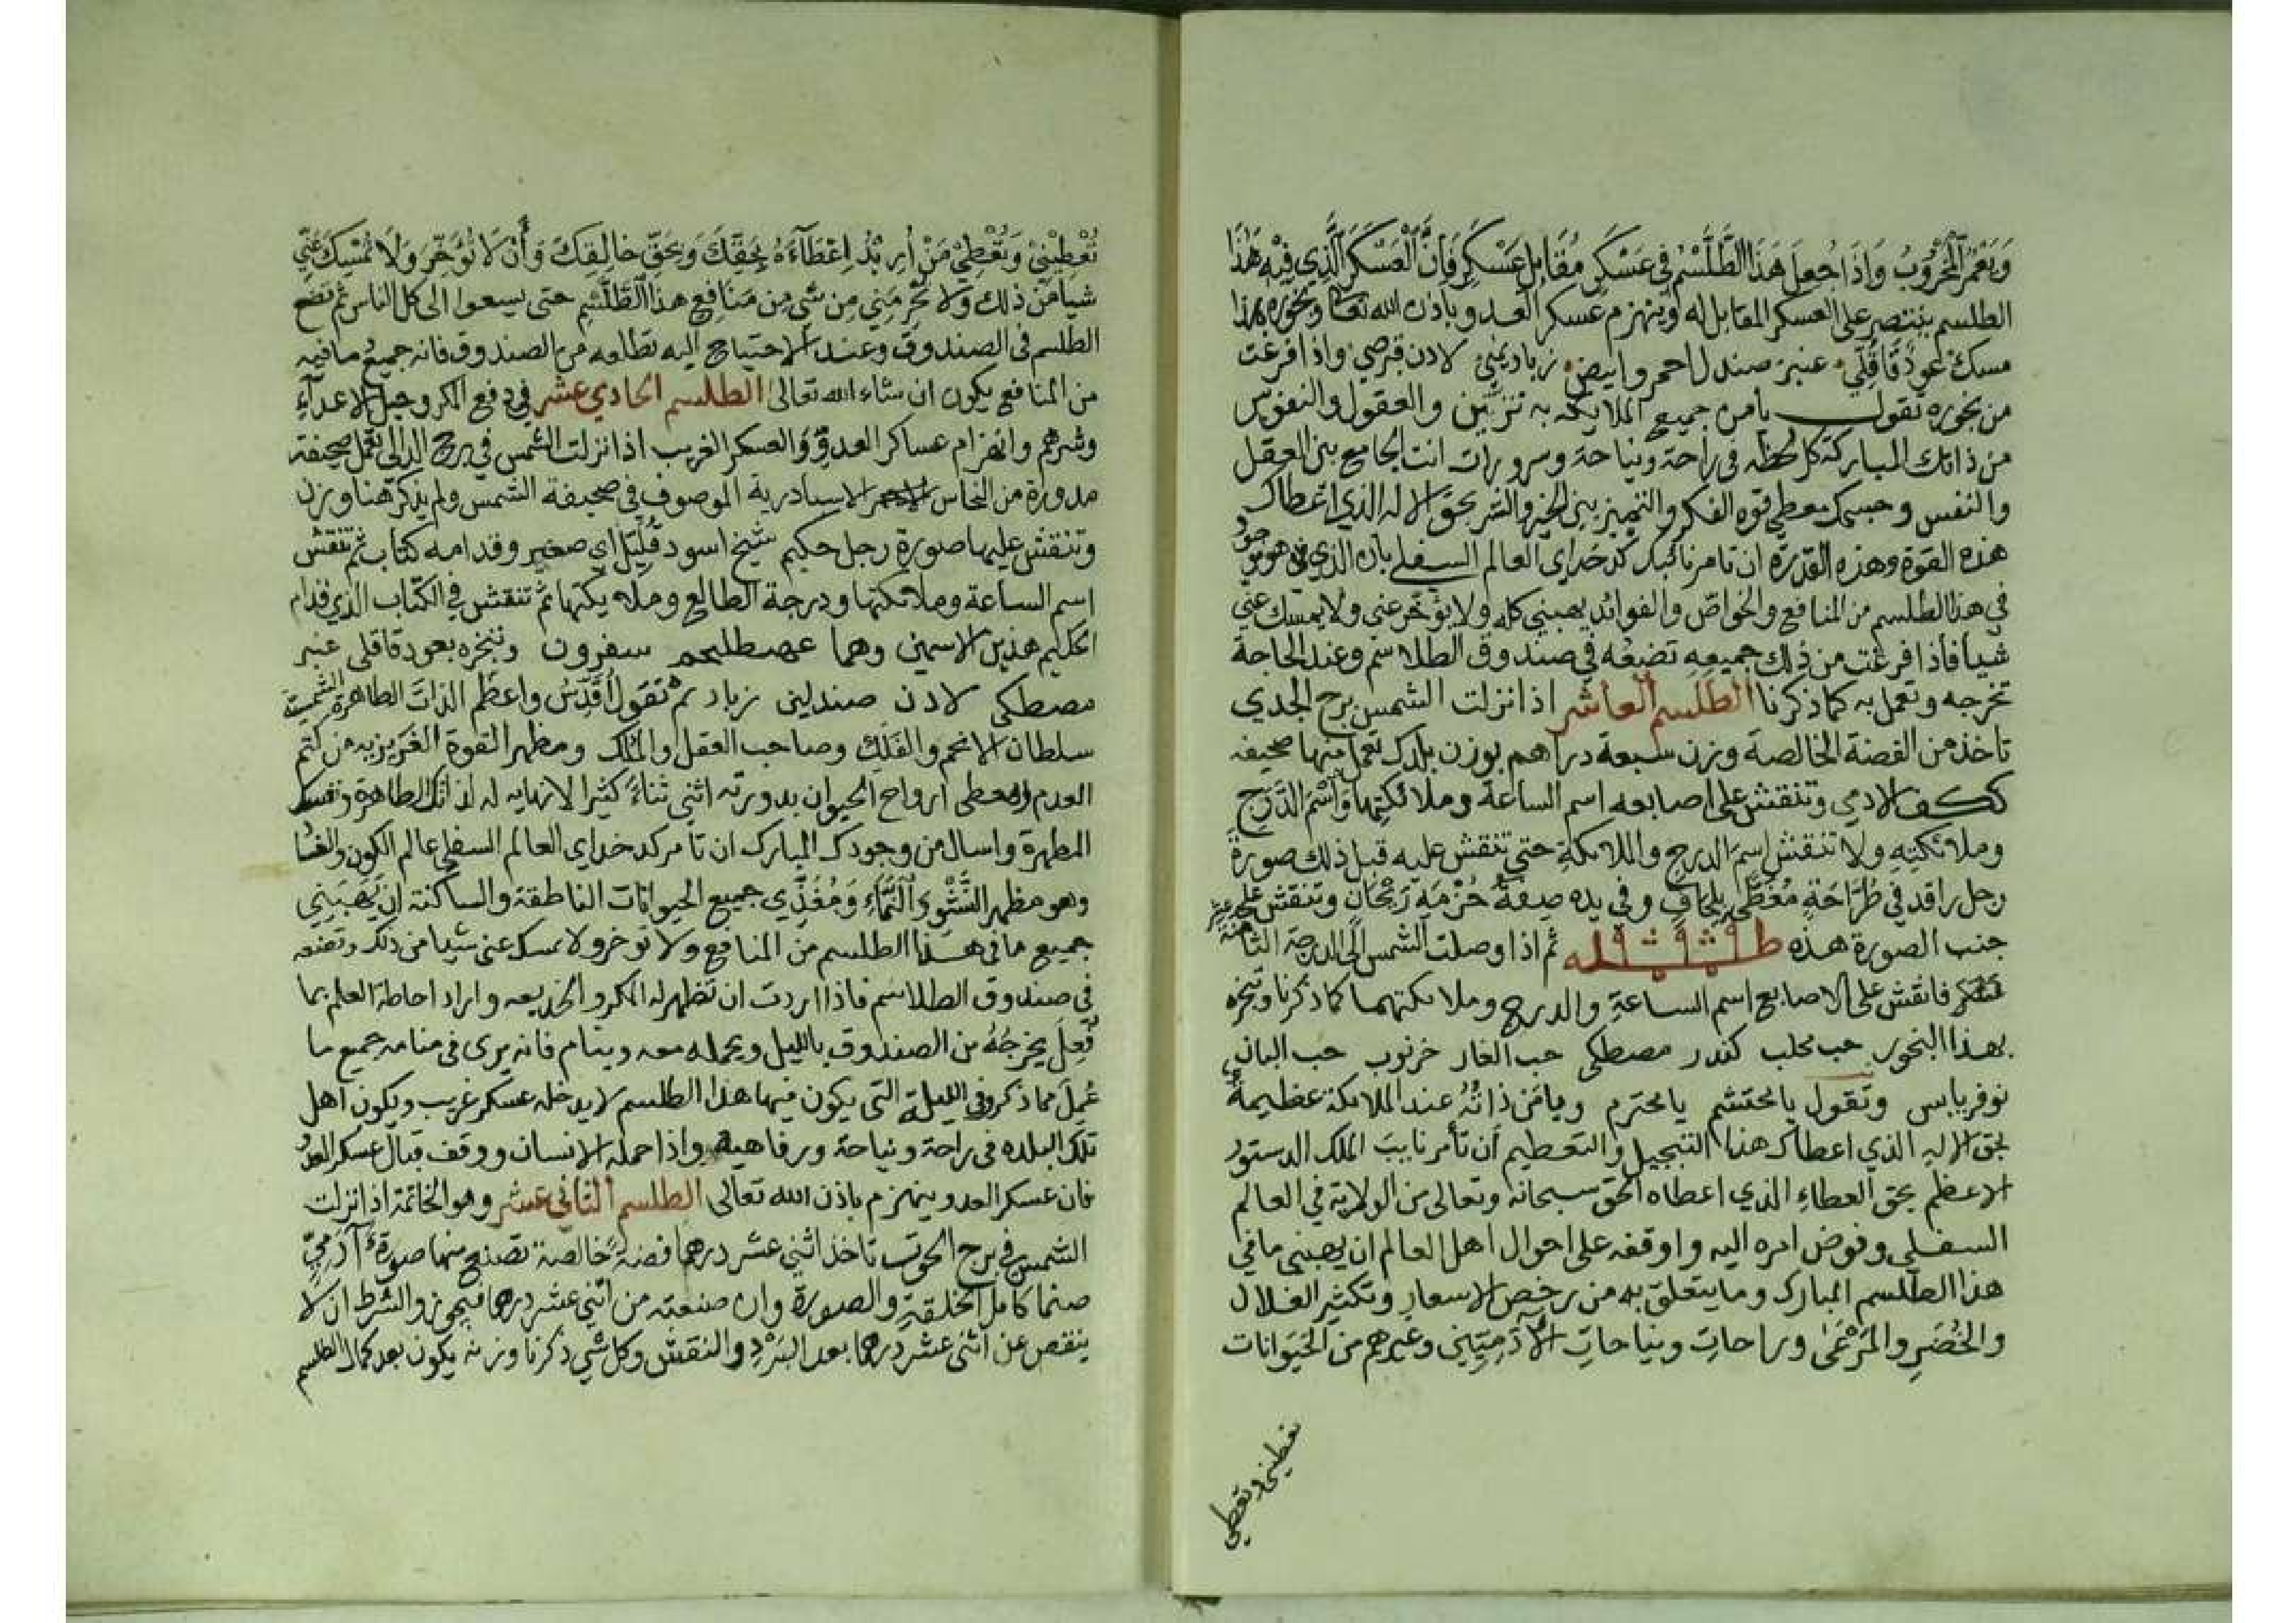 وَيَعْمُرُ الْخُرُوبُ وَاِذَا جُعِلَ هَذَا الطَّلْسَمُ فِي عَسْكَرٍ مُقَابِلِ عَسْكَرٍ فَاِنَّ الْعَسْكَرَ الَّذِي فِيْهِ هَذَا
الطلسم ينتصر على العسكر المقابل له وينهزم عسكر العدو باذن الله تعالى وبخوره هذا
مسك عود قاقلي عنبر صندل احمر وابيض زباد يمني لادن قرصي واذا فرغت
من بخوره تقول يا من جميع الملايكه به تزيين والعقول والنفوس
من ذاتك المباركة كل لحظه في راحة ونياحة وسرور انت الجامع بين العقل
والنفس وجسمك معطي قوه الفكر والتمييز بين الخير والشر بحق الاله الذي اعطاك
هذه القوة وهذه القدرة ان تامر نائبك كدخداى العالم السفلي بان الذي هو موجود
في هذا الطلسم من المنافع والخواص والفوائد يهبني كله ولا يؤخر عني ولا يمسك عني
شيا فاذا فرغت من ذلك جميعه تضعه في صندوق الطلاسم وعند الحاجة
تخرجه وتعمل به كما ذكرنا الطلسم العاشر اذا نزلت الشمس برج الجدي
تاخذ من الفضة الخالصة وزن سبعة دراهم بوزن بلدك تعمل منها صحيفه
ككف الادمي وتنقش على اصابعه اسم الساعة وملائكتها واسم الدرج
وملائكته ولا تنقش اسم الدرج والملائكة حتى تنقش عليه قبل ذلك صورة
رجل راقد في طُرَّاحَةٍ مُغَطَّى بِلِحَافٍ وفي يده صِفَةُ حُزْمَةِ رَيْحَانٍ وتنقش على
جنب الصورة هذه ثم اذا وصلت الشمس الى الدرجة الثامنة
عشر فانقش على الاصابع اسم الساعة والدرج وملائكتهما كما ذكرنا وتبخره
بهذا البخور حب محلب كندر مصطكى حب الغار خرنوب حب البان
نوفر يابس وتقول يا محتشم يا محترم ويا من ذاتُهُ عند الملائكة عظيمةٌ
بحق الاله الذي اعطاك هذا التبجيل والتعظيم أن تأمر نايبَ الملك الدستور
الاعظم بحق العطاءِ الذي اعطاه الحق سبحانه وتعالى من الولاية في العالم
السفلي وفوض امره اليه واوقفه على احوال اهل العالم ان يهبني ما في
هذا الطلسم المبارك وما يتعلق به من رخص الاسعارِ وتكثير الغلال
والخُضَرِ والمَرْعَى وراحاتِ ونياحاتِ الآدَمِيِّيْنِ وغيرهم من الحَيَوانات
تعطيني وتعطي
تُعْطِيْنِيْ وَتُعْطِيْ مَنْ اُرِيْدُ اِعْطَآءَهُ بِحَقِّكَ وَبِحَقِّ خَالِقِكَ وَأَنْ لَا تُؤَخِّرَ وَلَا تُمْسِكَ عَنِّي
شيا من ذلك ولا تَحْرِمَنِي مِن شي مِن مَنَافِعِ هذا الطَّلْسَمِ حتى يسعوا الى كل الناس ثم تضع
الطلسم في الصندوق وعند الاحتياج اليه تطلعه من الصندوق فانه جميع ما فيه
من المنافع يكون ان شاء الله تعالى الطلسم الحادي عشر في دفع المكر وحيل الاعداء
وشرهم وانهزام عساكر العدو والعسكر الغريب اذا نزلت الشمس في برج الدالي تعمل صحيفة
مدورة من النحاس الاحمر الاسبادرية الموصوف في صحيفة الشمس ولم يذكر هنا وزن
وتنقش عليها صورة رجل حكيم شيخ اسود قُلَيِّل اي صغير وقدامه كتاب ثم تنقش
اسم الساعة وملائكتها ودرجة الطالع وملايكتها ثم تنقش في الكتاب الذي قدام
الحكيم هذين الاسمين وهما سفرون وتبخره بعود قاقلي عنبر
مصطكي لادن صندلين زباد ثم تقول أقدس واعظم الذات الطاهرة الشمسية
سلطان الانجم والفلك وصاحب العقل والملك ومظهر القوة الغريزيه من كتم
العدم ومعطى ارواح الحيوان بدورته اثنى ثناءً كثيرا لا نهايه له لذاتك الطاهرة ونفسك
المطهرة واسال من وجودك المبارك ان تامر كدخداى العالم السفلي عالم الكون والفساد
وهو مظهر النشوِ والنَّمَاءِ وَمُغَذِّي جميع الحيوانات الناطقة والساكنة ان يَهَبَنِي
جميع ما في هذا الطلسم من المنافع ولا توخر ولا تمسك عني شيا من ذلك وتضعه
في صندوق الطلاسم فاذا اردت ان تظهر له المكر والخديعه واراد احاطة العلم بما
فُعِلَ يخرجُهُ من الصندوق بالليل ويحمله معه وينام فانه يرى في منامه جميع ما
عُمِلَ مما ذكر وفي الليلة التي يكون فيها هذا الطلسم لا يدخله عسكر غريب ويكون اهل
تلك البلده في راحة ونياحة ورفاهية واذا حمله الانسان ووقف قبال عسكر العدو
فان عسكر العدو ينهزم باذن الله تعالى الطلسم الثاني عشر وهو الخاتمة اذا نزلت
الشمس في برج الحوت تاخذ اثنى عشر درهما فضةً خالصة تصنع منها صورة آدَمِيّ
صنما كامل الخلقةِ والصورة وان صنعته من اثنى عشر درهما فيجوز والشرط ان لا
ينقص عن اثنى عشر درهما بعد البَرْدِ والنقش وكل شي ذكرنا وزنه يكون بعد كمال الطلسم